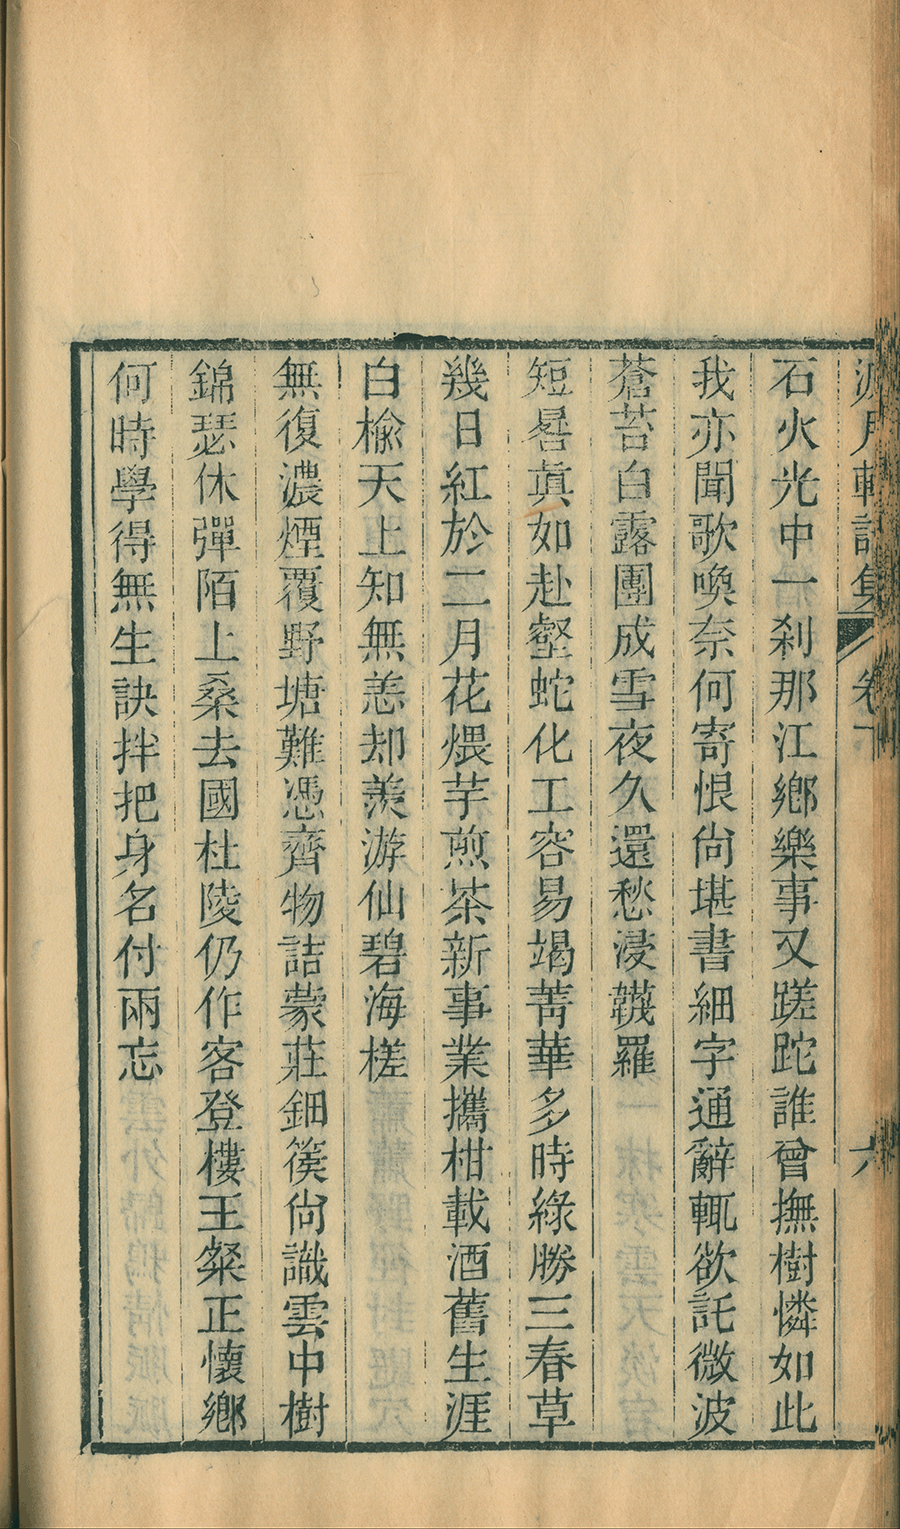 月軒詩集 卷下 六
石火光中一刹那江鄉樂事又蹉跎誰曾撫樹憐如此
我亦聞歌喚奈何寄恨尙堪書細字通辭輒欲託微波
蒼苔白露團成雪夜久還愁浸韈羅
短晷眞如赴壑蛇化工容易竭菁華多時綠勝三春草
幾日紅於二月花煨芋煎茶新事業攜柑載酒舊生涯
白楡天上知無恙却羨游仙碧海槎
無復濃煙覆野塘難憑齊物詰蒙莊鈿篌尙識雲中樹
錦瑟休彈陌上桑去國杜陵仍作客登樓王粲正懷鄉
何時學得無生訣拌把身名付兩忘